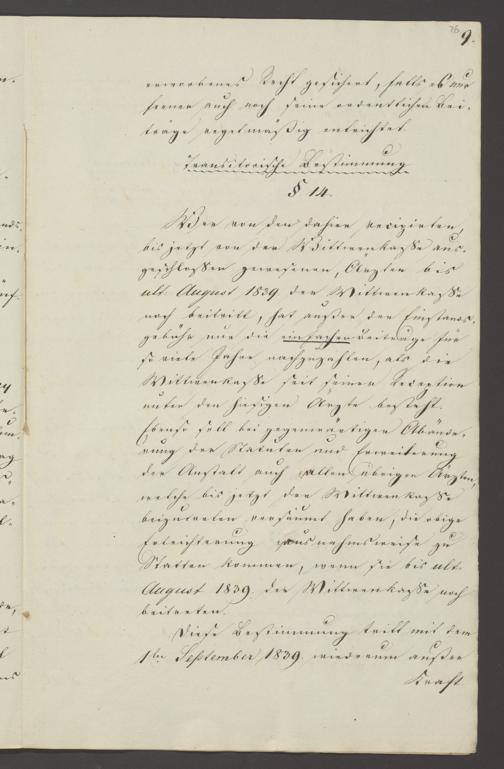 76 9.
erworbenes Recht gesichert, falls es nur
ferner auch noch seine ordentlichen Bei-
träge regelmäßig entrichtet.
Transitorische Bestimmung
§ 14.
Wer von den dahier recipirten,
bis jetzt von der Wittwenkasse aus-
geschlossen gewesenen, Ärzten bis
ult. August 1839 der Wittwenkasse
noch beitritt, hat außer der Einstands-
gebühr nur die einfachen Beiträge für
so viele Jahre nachzuzahlen, als die
Wittwenkasse seit seiner Reception
unter den hiesigen Ärzte besteht.
Ebenso soll bei gegenwärtiger Abände-
rung der Statuten und Erweiterung
der Anstalt auch allen übrigen Ärzten,
welche bis jetzt der Wittwenkasse
beizutreten versäumt haben, die obige
Erleichterung ausnahmsweise zu
Statten kommen, wenn sie bis ult.
August 1839. der Wittwenkasse noch
beitreten.
Diese Bestimmung tritt mit dem
1ten September 1839. wiederum außer
Kraft.